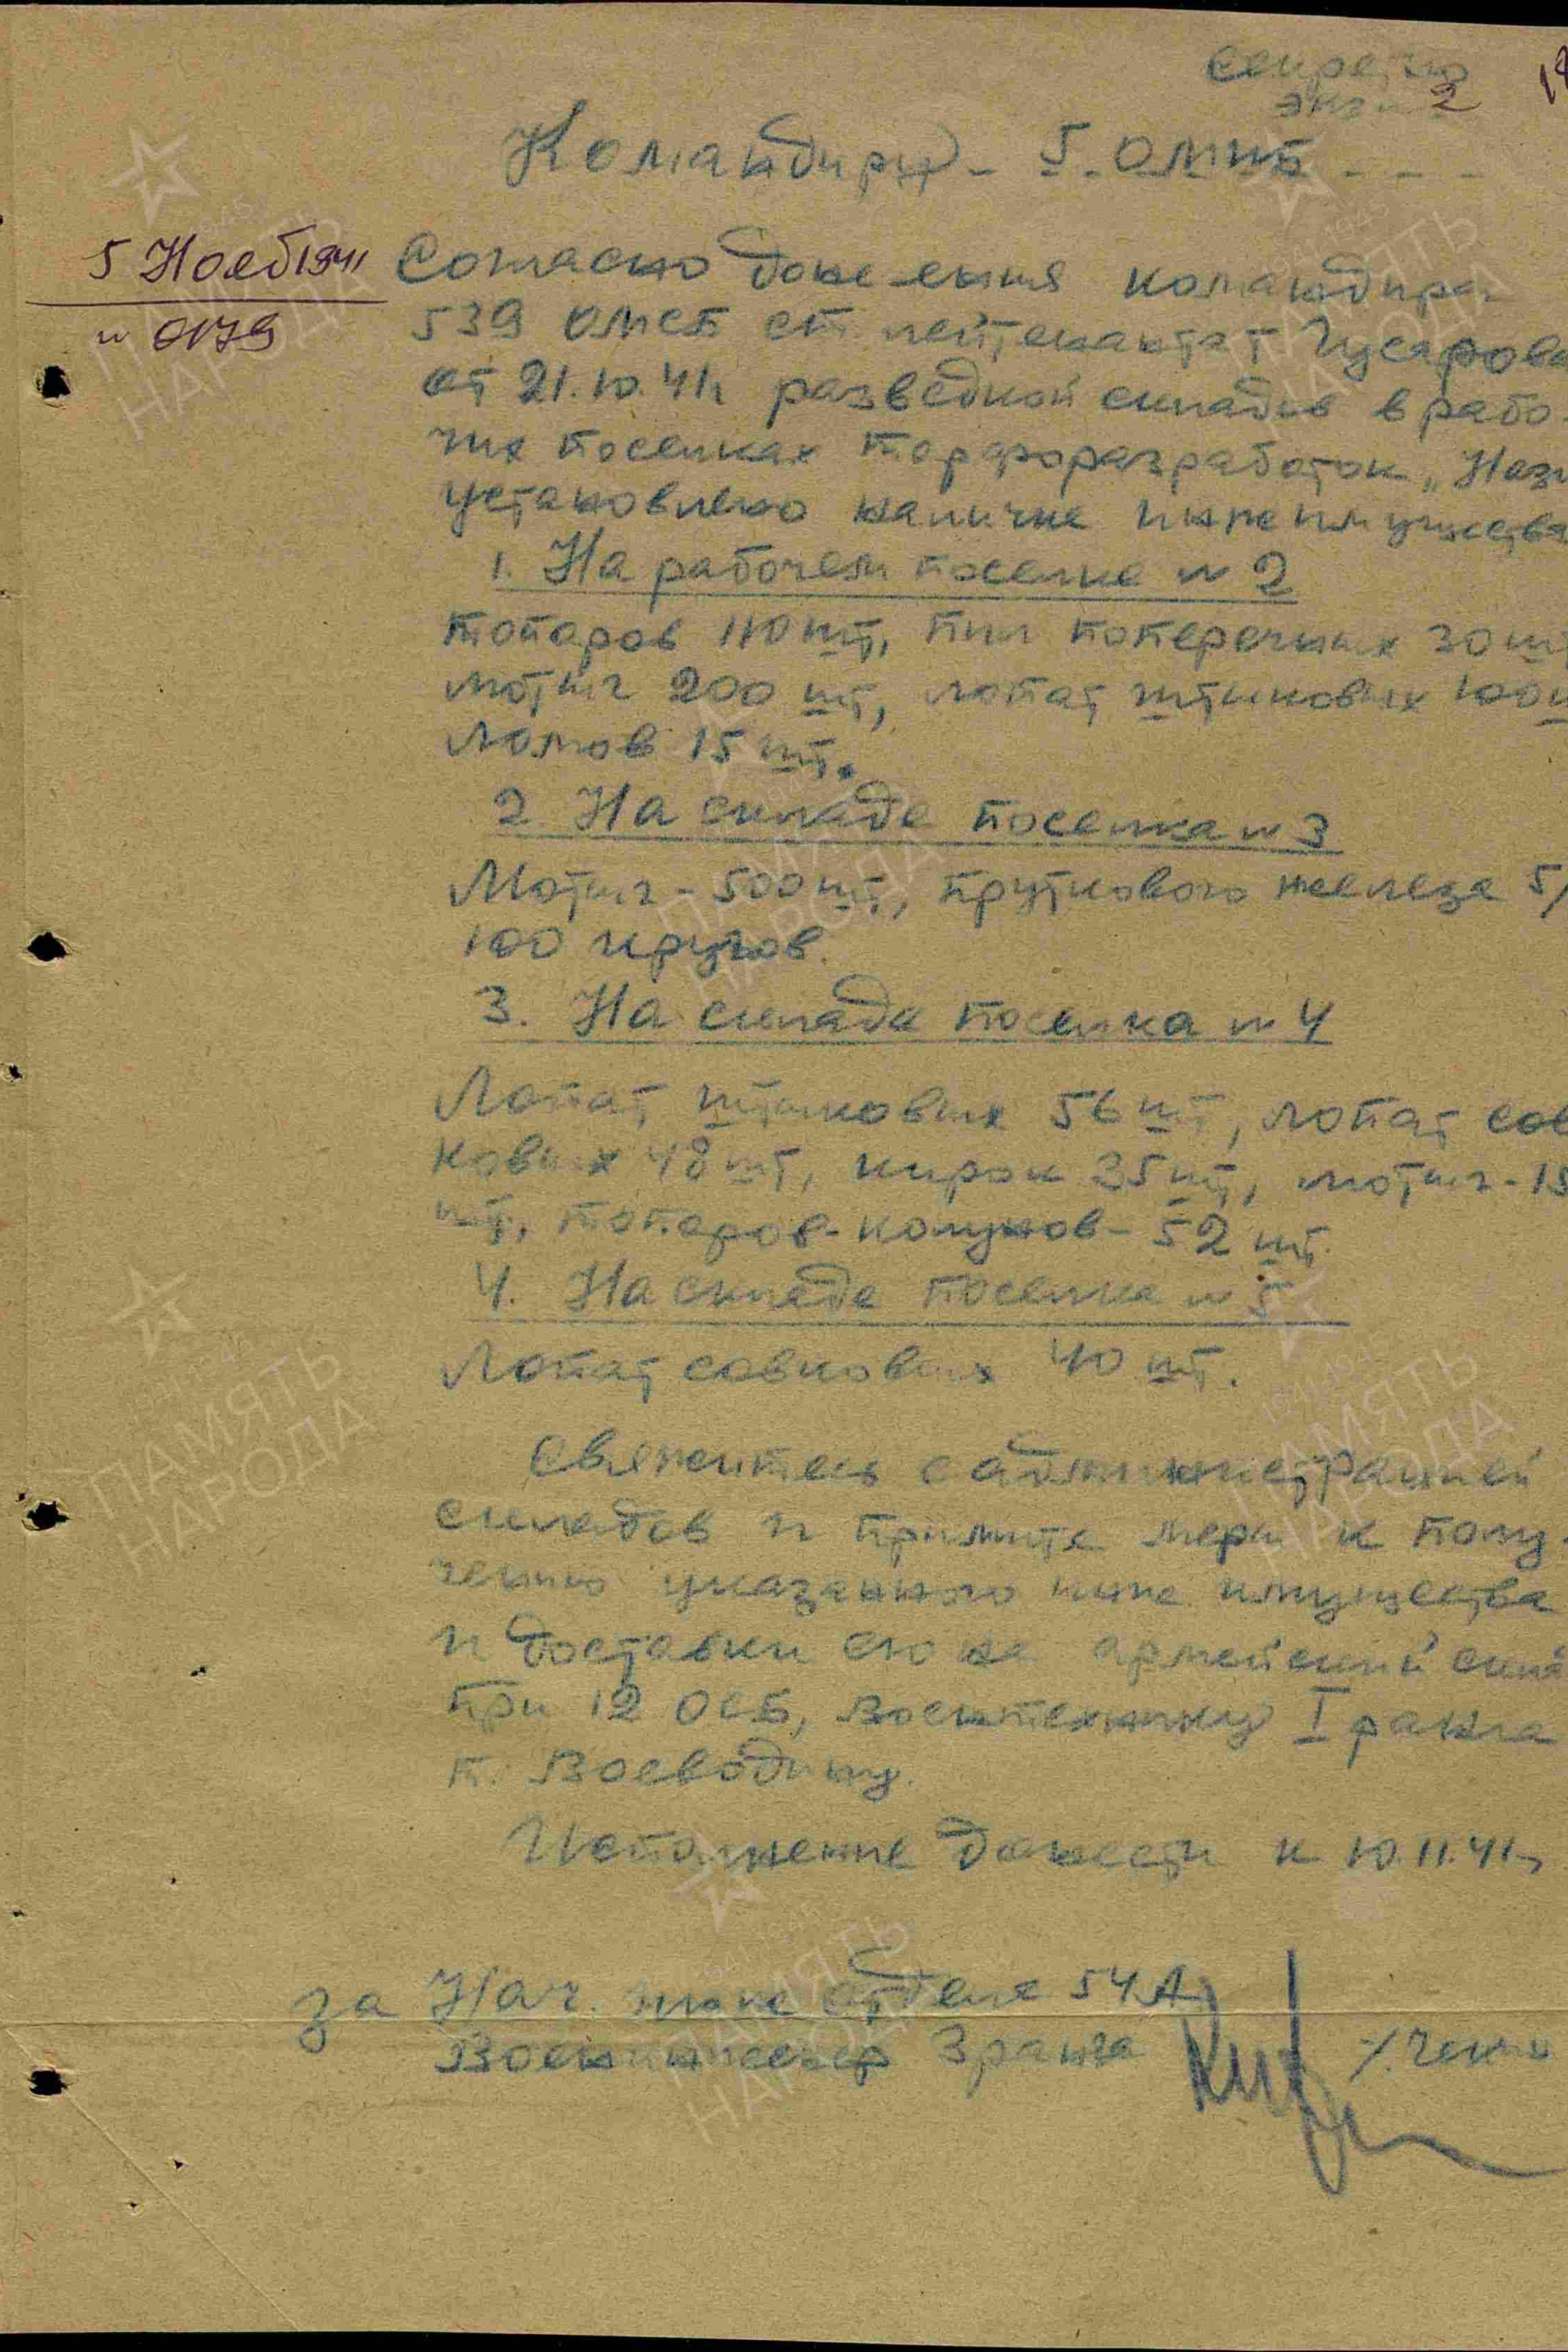 Секретно
экз. 2
Командиру 5 ОМИБ
5 Нояб 1941
№ 0179
Согласно донесения командира
539 ОМСБ ст. лейтенанта т Гусарова
от 21.10.41г разведкой складов в рабо-
чих поселках торфоразработок „Назия
установлено наличие инжимущества
1. На рабочем поселке № 2
топоров 110 шт, пил поперечных 30 шт
мотыг 200 шт, лопат штыковых 100 ш
ломов 15 шт.
2. На складе поселка № 3
Мотыг - 500 шт, пруткового железа 5/
100 кругов.
3. На складе поселка № 4
Лопат штыковых 56 шт, лопат сов
ковых 48 шт, кирок 35 шт, мотыг - 15
шт, топоров-колунов - 52 шт.
4. На складе поселка № 5
Лопат совковых 40 шт.
Свяжитесь с администрацией
складов и примите меры к полу-
чению указанного инж. имущества
и доставки его на армейский скла
при 12 ОСБ, Воентехнику I ранга
т. Воеводину.
Исполнение донести к 10.11.41г
за Нач. инж отдела 54А
Военинженер 3 ранга
ПАМЯТЬ
НАРОДА
1941-1945